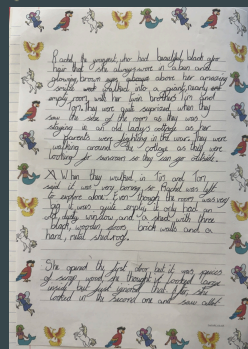 Rachel, the youngest, who had beautiful black afro
hair that she always wore in a bun and
glowing brown eyes, always above her amazing
smile went walked into a giant, nearly
empty room, with her twin brothers Tim and
Tom. They were quite surprised when they
saw the size of the room as they was
staying in an old lady's cottage as her
parents were fighting in the war. They were
walking around the cottage as they were
looking for sunscreen so they can go outside.
When they walked in Tim and Tom,
said it was very boring so Rachel was left
to explore alone. Even though the room was very
big it was quite simple. It only had an
old, dusty window and a shed with three
black, wooden, doors brick walls and a
hard, metal shed roof.
She opened the first door but it was pieces
of scrap wood, she thought it looked
inside but just ignored that after, she
looked in the second one and saw